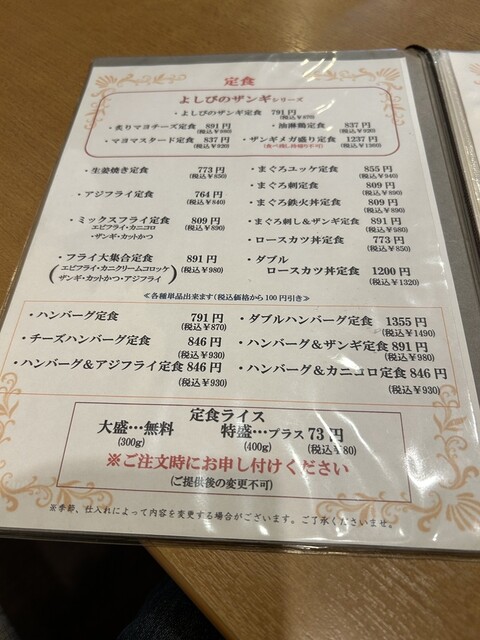 定食
よしびのザンギシリーズ
・よしびのザンギ定食 791円
(税込￥870)
・炙りマヨチーズ定食 891円
(税込￥980)
・油淋鶏定食 837円
(税込￥920)
・マヨマスタード定食 837円
(税込￥920)
・ザンギメガ盛り定食 1237円
(食べ残し持帰り不可) (税込￥1360)
・生姜焼き定食 773円
(税込￥850)
・アジフライ定食 764円
(税込￥840)
・ミックスフライ定食 809円
エビフライ・カニコロ (税込￥890)
・ザンギ・カットかつ
・フライ大集合定食 891円
(エビフライ・カニクリームコロッケ (税込￥980)
ザンギ・カットかつ・アジフライ)
・まぐろユッケ定食 855円
(税込￥940)
・まぐろ刺定食 809円
(税込￥890)
・まぐろ鉄火丼定食 809円
(税込￥890)
・まぐろ刺し＆ザンギ定食 891円
(税込￥980)
・ロースカツ丼定食 773円
(税込￥850)
・ダブル
ロースカツ丼定食 1200円
(税込￥1320)
≪各種単品出来ます(税込価格から100円引き)≫
・ハンバーグ定食 791円
(税込￥870)
・チーズハンバーグ定食 846円
(税込￥930)
・ハンバーグ＆アジフライ定食 846円
(税込￥930)
・ダブルハンバーグ定食 1355円
(税込￥1490)
・ハンバーグ＆ザンギ定食 891円
(税込￥980)
・ハンバーグ＆カニコロ定食 846円
(税込￥930)
定食ライス
大盛…無料 特盛…プラス73円
(300g) (400g) (税込￥80)
※ご注文時にお申し付けください
(ご提供後の変更不可)
※季節、仕入れによって内容を変更する場合がございます。ご了承くださいませ。